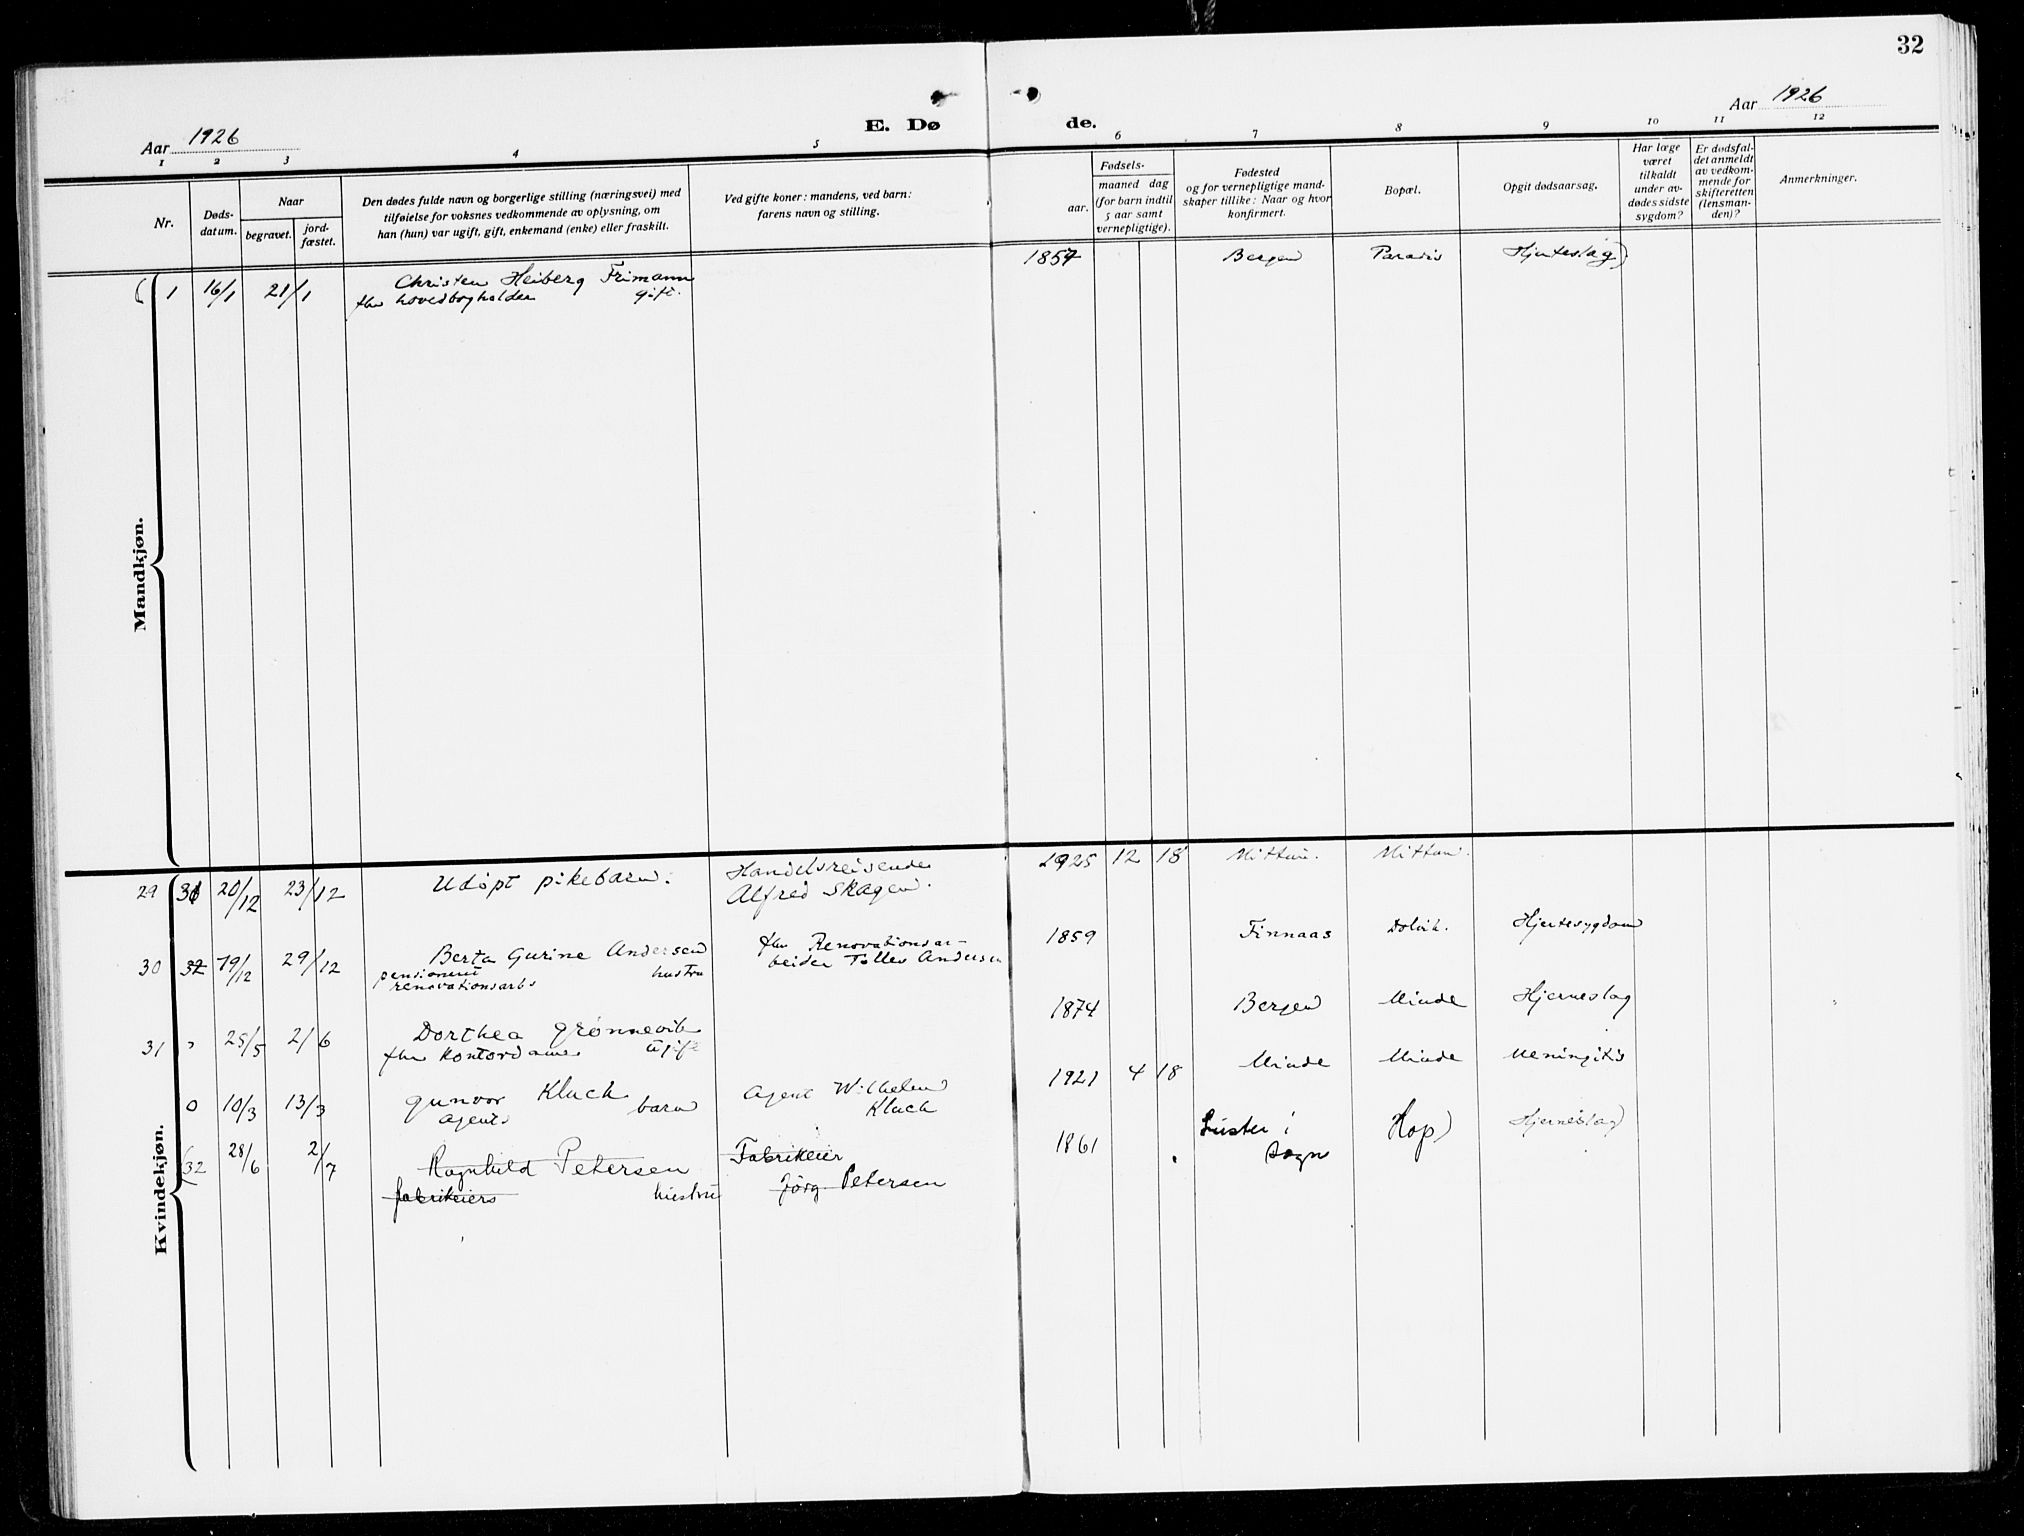 32
Aar 1926
E. Dø
de.
Aar 1926
1 2 3 4 5 6 7 8 9 10 11 12
Nr.
Døds-
datum.
Naar
begravet.
jord-
fæstet.
Den dødes fulde navn og borgerlige stilling (næringsvei) med
tilføielse for voksnes vedkommende av oplysning, om
han (hun) var ugift, gift, enkemand (enke) eller fraskilt.
Ved gifte koner: mandens, ved barn:
farens navn og stilling.
Fødsels-
aar.
maaned dag
(for barn indtil
5 aar samt
vernepligtige).
Fødested
og for vernepligtige mand-
skaper tillike: Naar og hvor
konfirmert.
Bopæl.
Opgit dødsaarsag.
Har læge
været
tilkaldt
under av-
dødes sidste
sygdom?
Er dødsfal-
det anmeldt
av vedkom-
mende for
skifteretten
(lensman-
den)?
Anmerkninger.
Mandkjøn.
( 1 16/1 21/1 Christen Heiberg Frimann 1857 Bergen Paradis Hjerteslag)
fhv hovedbogholder gift.
Kvindekjøn.
29 31 20/12 23/12 Udöpt pikebarn. Handelsreisende 1925 12 18 Mittun. Mittun.
Alfred Skagen.
30 32 19/12 29/12 Berta Gurine Andersen fhv Renovationsar- 1859 Finnaas Dolvik. Hjertesygdom
pensioneret hustru beider Tollev Andersen
renovationsarbs
31 25/5 2/6 Dorthea Grønnevik 1874 Bergen Minde Hjerneslag
fhv Kontordame ugift
0 10/3 13/3 Gunvor Kluck Agent Wilhelm 1921 4 18 Minde Minde Meningitis
agents barn Kluck
(32 28/6 2/7 Ragnhild Petersen Fabrikeier 1861 Luster i Hop) Hjerneslag)
fabrikeiers hustru Jörg Petersen Sogn